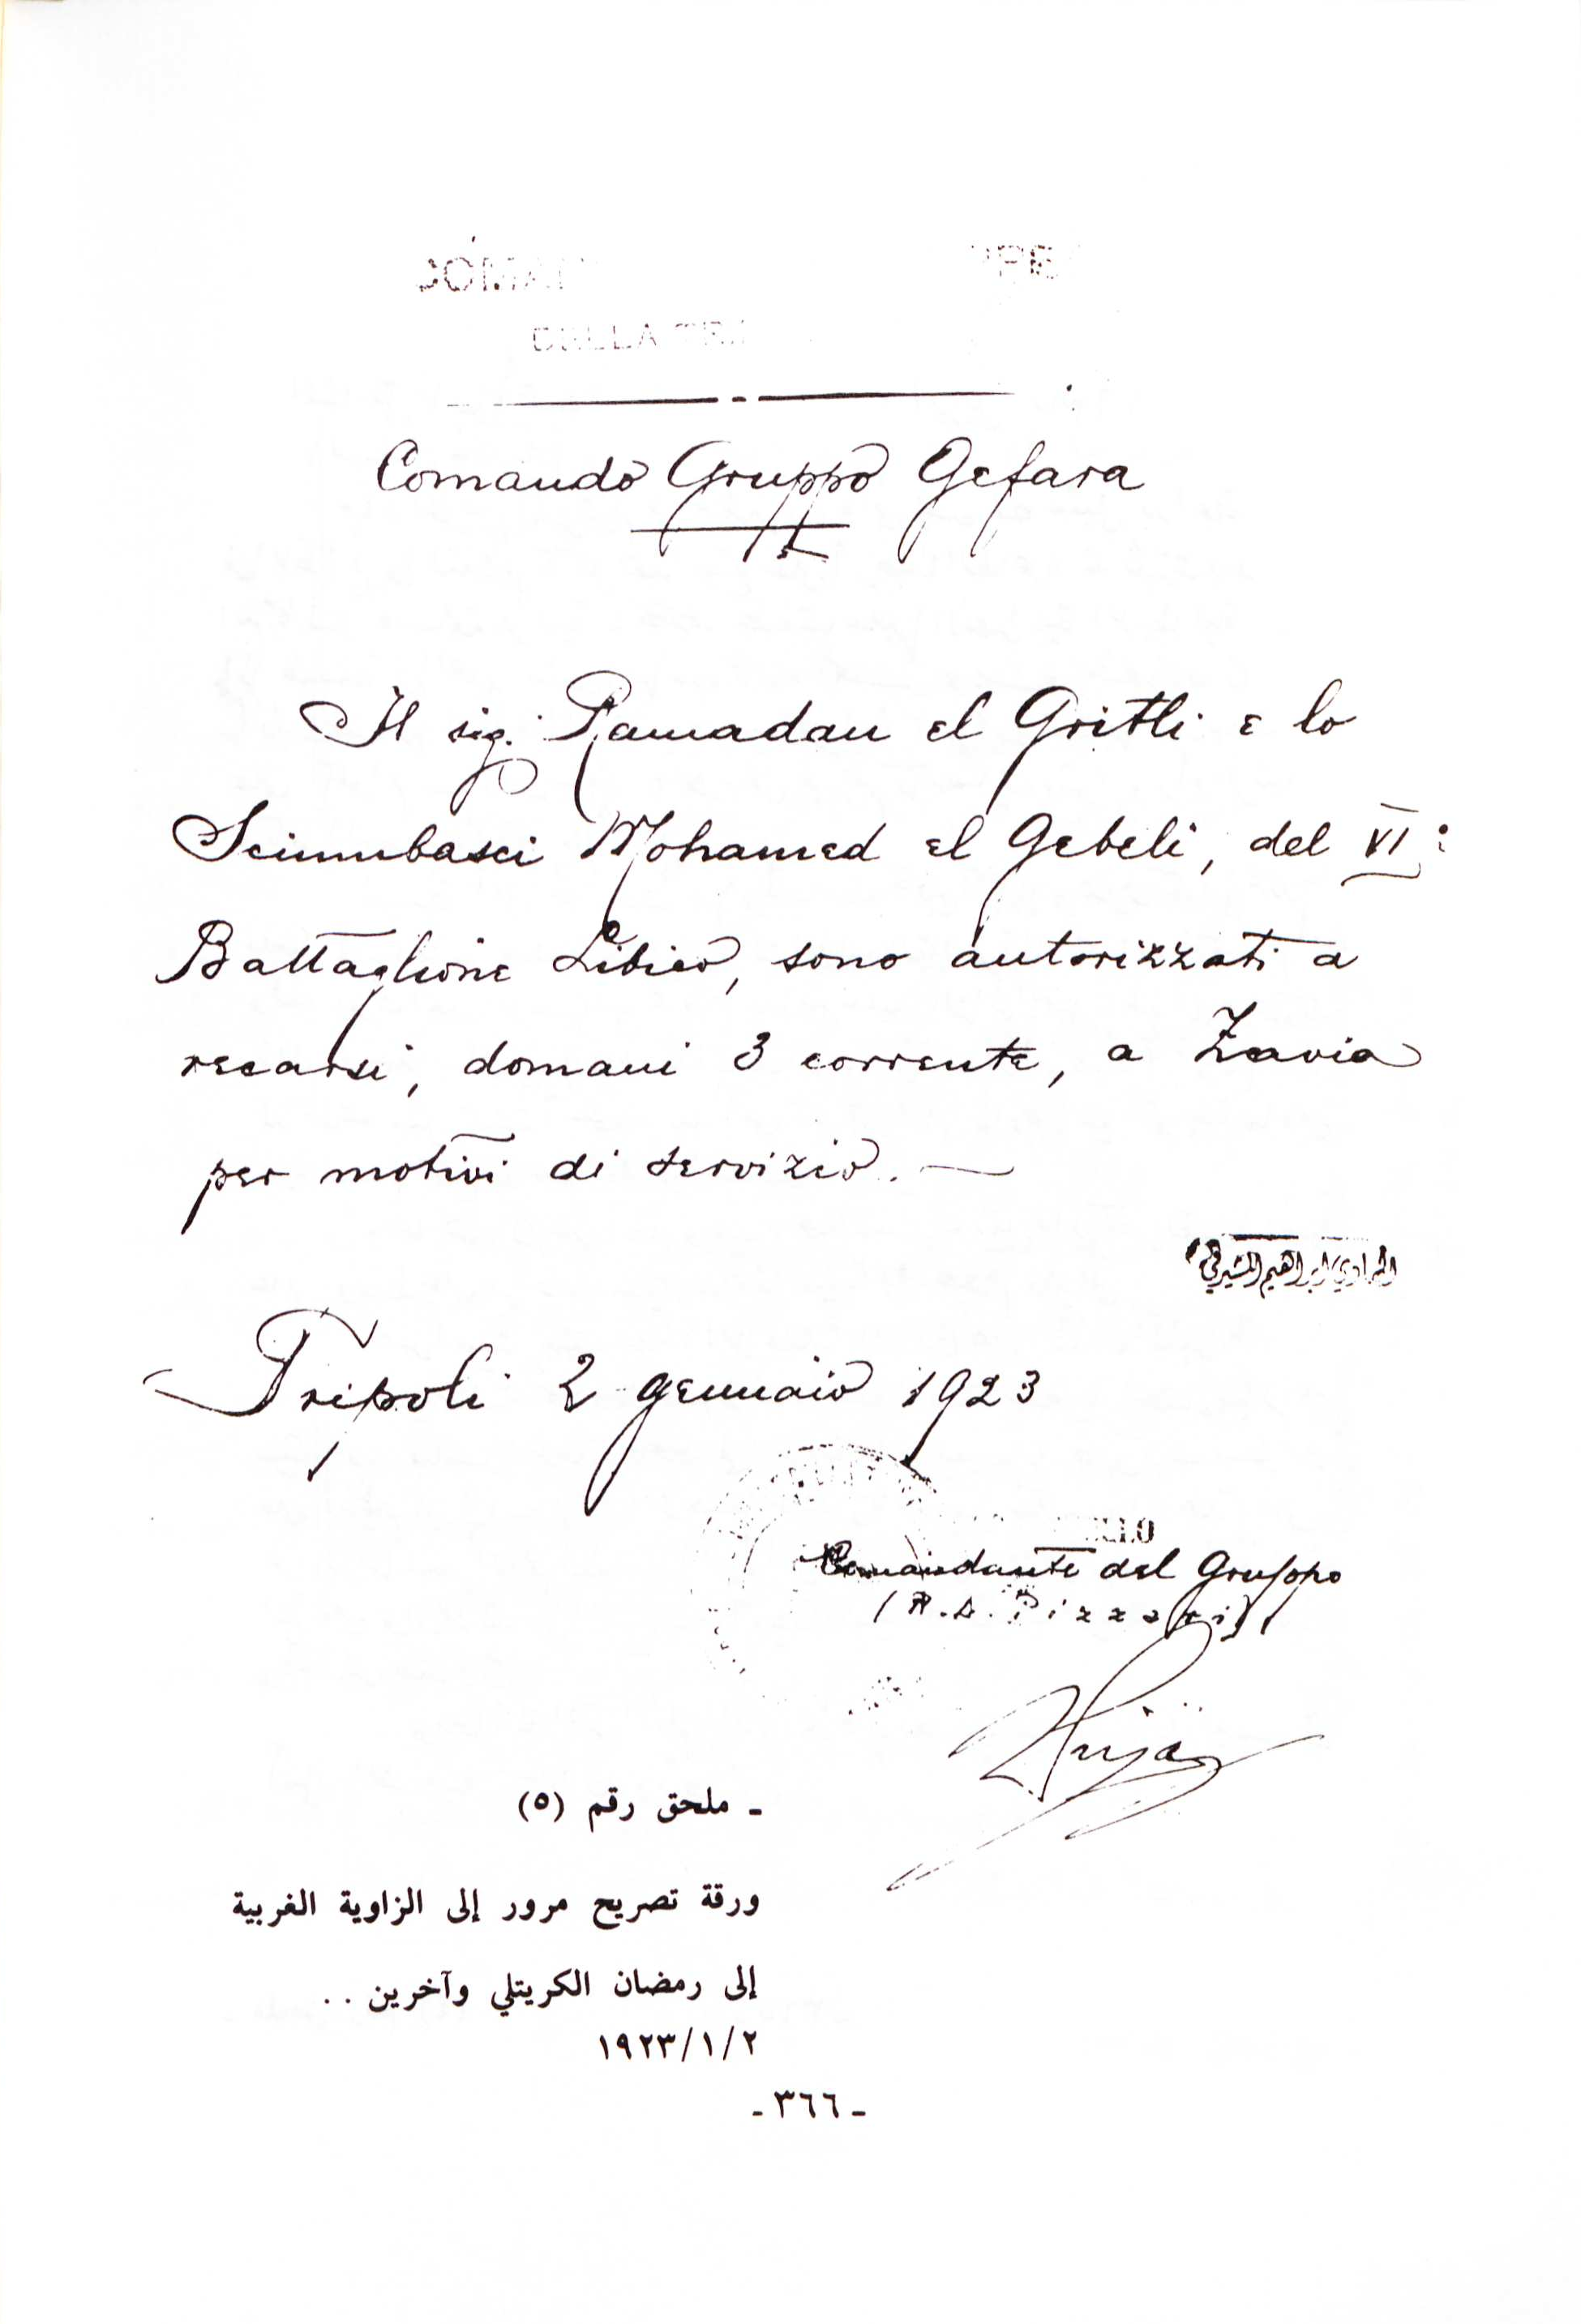 Comando Gruppo Gefara
Il sig. Ramadan el Gritli e lo
Sciumbasci Mohamed el Gebeli, del VI:
Battaglione Libico, sono autorizzati a
recarsi, domani 3 corrente, a Zavia
per motivi di servizio. —
الهادي ابراهيم المشيرقي
Tripoli 2 gennaio 1923
Comandante del Gruppo
ـ ملحق رقم (٥)
ورقة تصريح مرور إلى الزاوية الغربية
إلى رمضان الكريتلي وآخرين ..
١٩٢٣/١/٢
ـ ٣٦٦ ـ